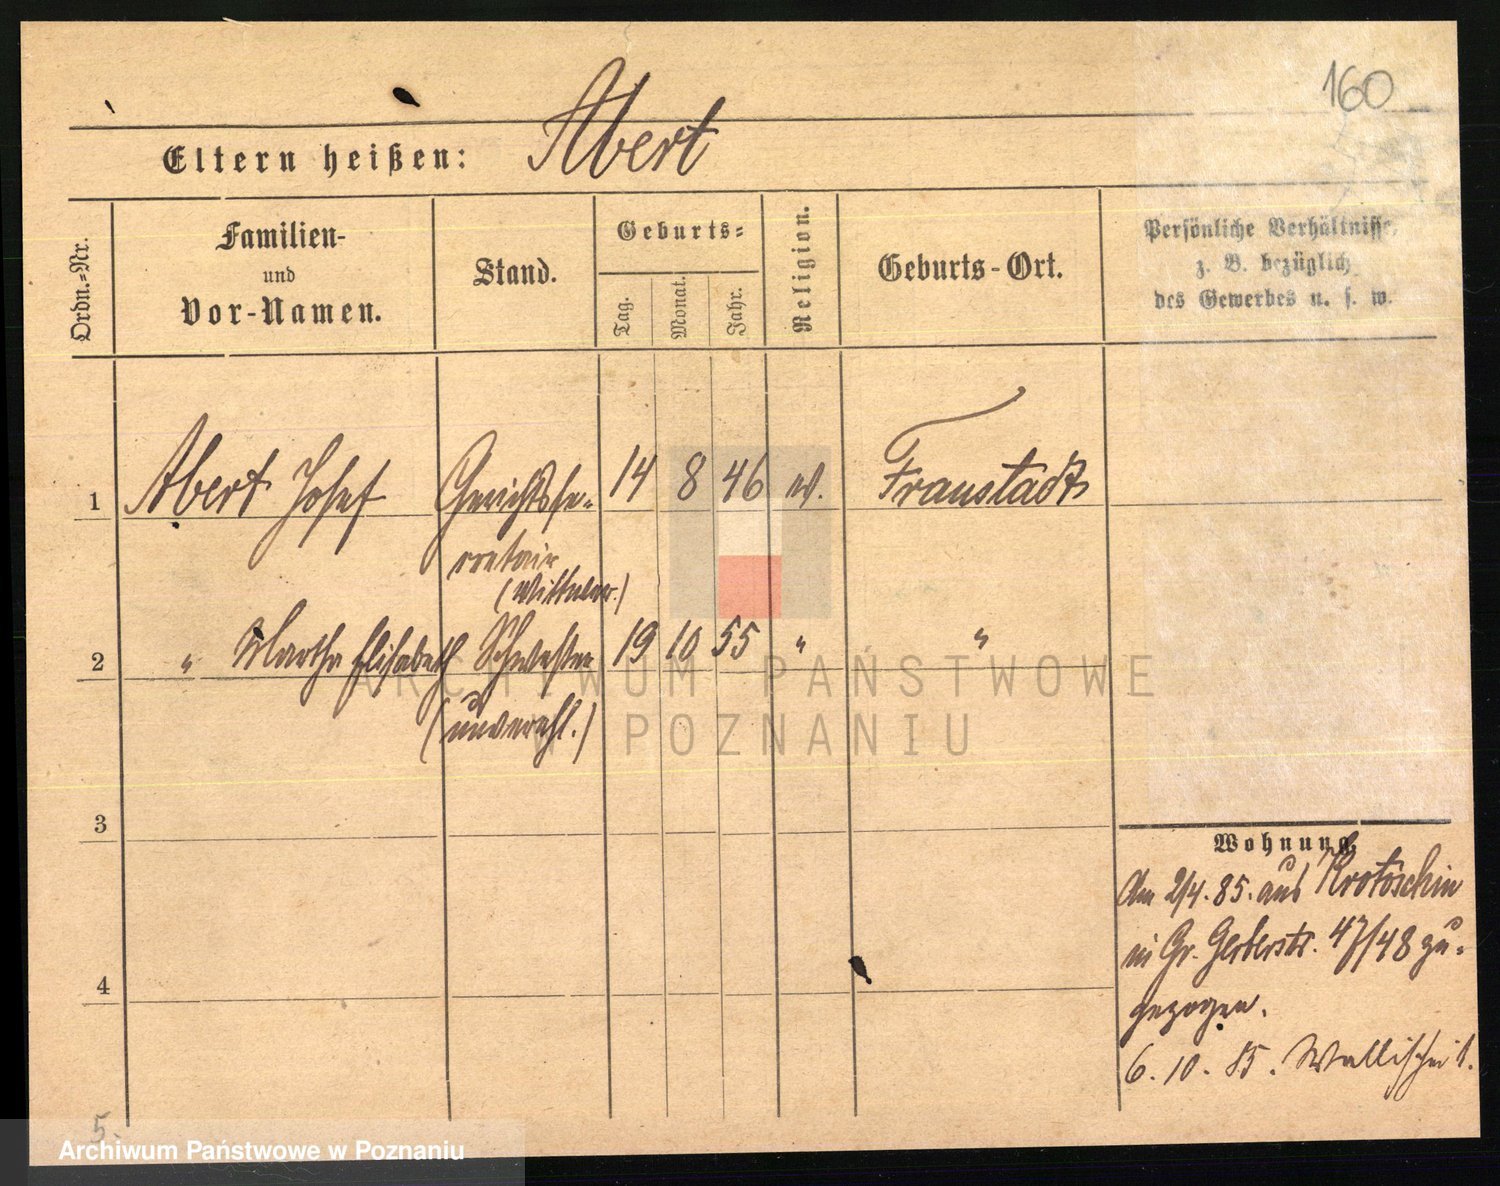 160
Eltern heißen: Abert
Ordn.=Nr.
Familien- und Vor-Namen.
Stand.
Geburts=
Tag.
Monat.
Jahr.
Religion.
Geburts-Ort.
Persönliche Verhältnisse,
z. B. bezüglich
des Gewerbes u. s. w.
1 Abert Josef Gerichtsse= 14 8 46 Fraustadt
cretair
(Wittwer.)
2 " Martha Elisabeth Schwester 19 10 55 " "
(unverehl.)
3
4
5.
Wohnung.
Am 2/4. 85. aus Krotoschin
in Gr. Gerberstr. 47/48 zu=
gezogen.
6. 10. 85. Wallischei 1.
ARCHIWUM PAŃSTWOWE
W POZNANIU
Archiwum Państwowe w Poznaniu